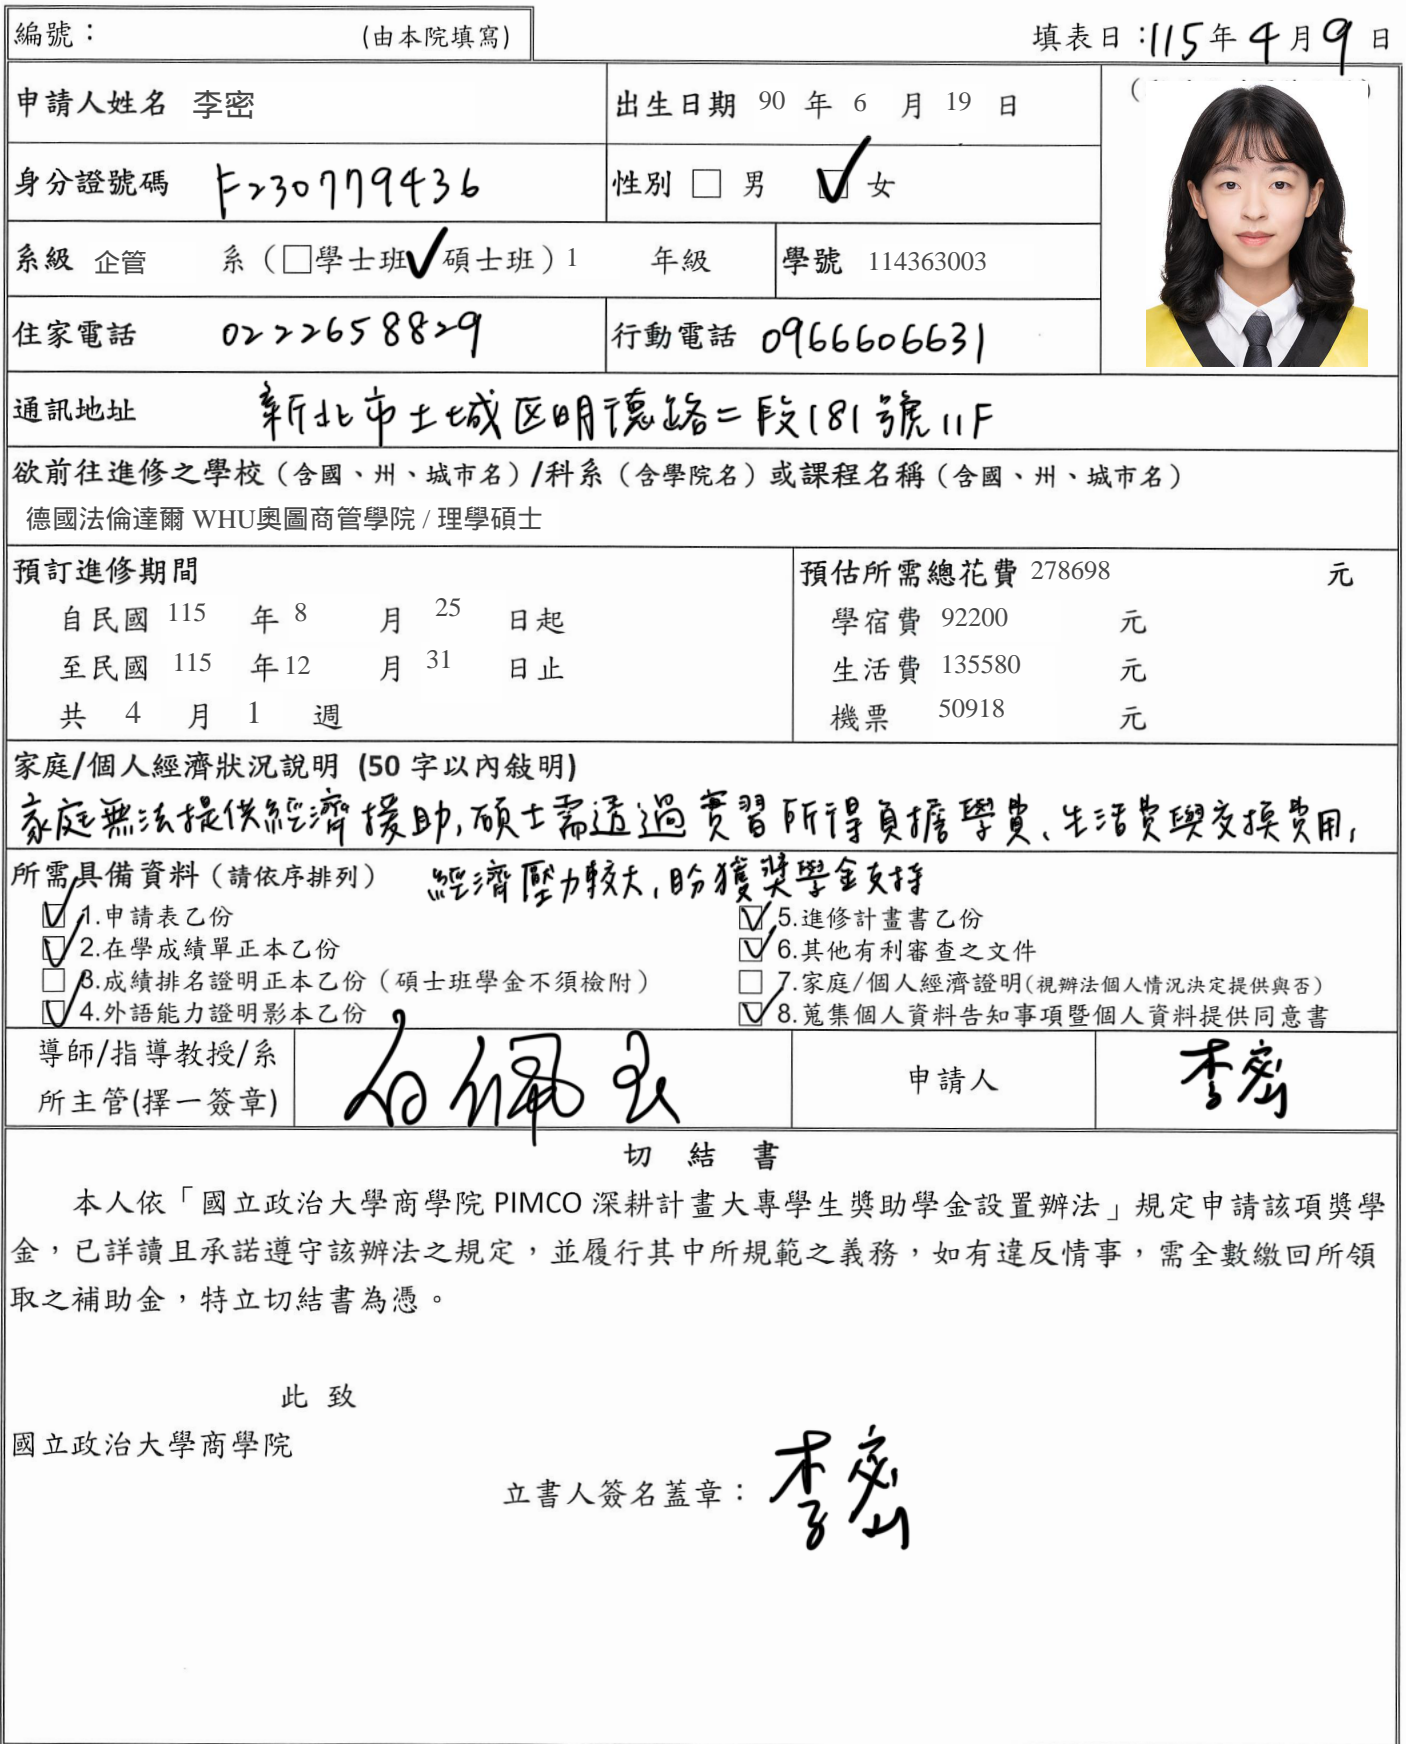 編號： (由本院填寫)
填表日：115年4月9日
申請人姓名 李密 出生日期 90 年 6 月 19 日
身分證號碼 F230779436 性別 □ 男 ☑ 女
系級 企管 系（□學士班☑碩士班）1 年級 學號 114363003
住家電話 0222658829 行動電話 0966606631
通訊地址 新北市土城区明德路二段181號11F
欲前往進修之學校（含國、州、城市名）/科系（含學院名）或課程名稱（含國、州、城市名）
德國法倫達爾 WHU奧圖商管學院 / 理學碩士
預訂進修期間 預估所需總花費 278698 元
自民國 115 年 8 月 25 日起 學宿費 92200 元
至民國 115 年 12 月 31 日止 生活費 135580 元
共 4 月 1 週 機票 50918 元
家庭/個人經濟狀況說明 (50 字以內敍明)
家庭無法提供經濟援助,碩士需透過實習所得負擔學費、生活費與交換費用,
經濟壓力較大,盼獲獎學金支持
所需具備資料（請依序排列）
☑ 1.申請表乙份 ☑ 5.進修計畫書乙份
☑ 2.在學成績單正本乙份 ☑ 6.其他有利審查之文件
□ 3.成績排名證明正本乙份（碩士班學金不須檢附） □ 7.家庭/個人經濟證明(視辦法個人情況決定提供與否)
☑ 4.外語能力證明影本乙份 ☑ 8.蒐集個人資料告知事項暨個人資料提供同意書
導師/指導教授/系
所主管(擇一簽章) 申請人 李密
切 結 書
本人依「國立政治大學商學院 PIMCO 深耕計畫大專學生獎助學金設置辦法」規定申請該項獎學
金，已詳讀且承諾遵守該辦法之規定，並履行其中所規範之義務，如有違反情事，需全數繳回所領
取之補助金，特立切結書為憑。
此 致
國立政治大學商學院
立書人簽名蓋章：李密